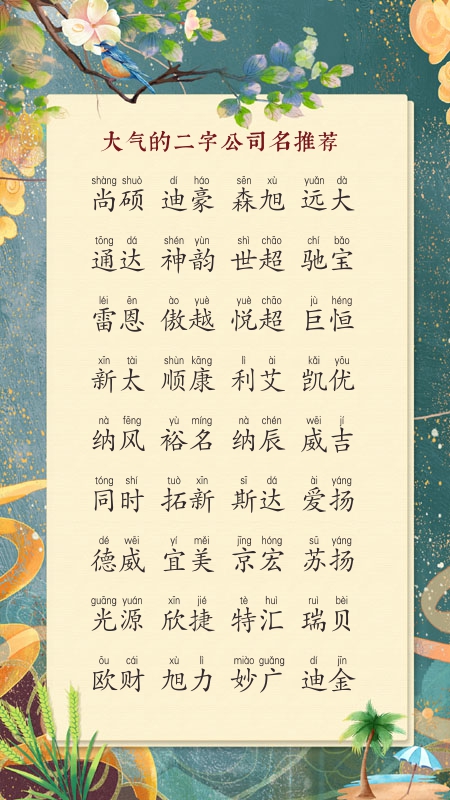 大气的二字公司名推荐
shàng shuò dí háo sēn xù yuǎn dà
尚硕 迪豪 森旭 远大
tōng dá shén yùn shì chāo chí bǎo
通达 神韵 世超 驰宝
léi ēn ào yuè yuè chāo jù héng
雷恩 傲越 悦超 巨恒
xīn tài shùn kāng lì ài kǎi yōu
新太 顺康 利艾 凯优
nà fēng yù míng nà chén wēi jí
纳风 裕名 纳辰 威吉
tóng shí tuò xīn sī dá ài yáng
同时 拓新 斯达 爱扬
dé wēi yí měi jīng hóng sū yáng
德威 宜美 京宏 苏扬
guāng yuán xīn jié tè huì ruì bèi
光源 欣捷 特汇 瑞贝
ōu cái xù lì miào guǎng dí jīn
欧财 旭力 妙广 迪金